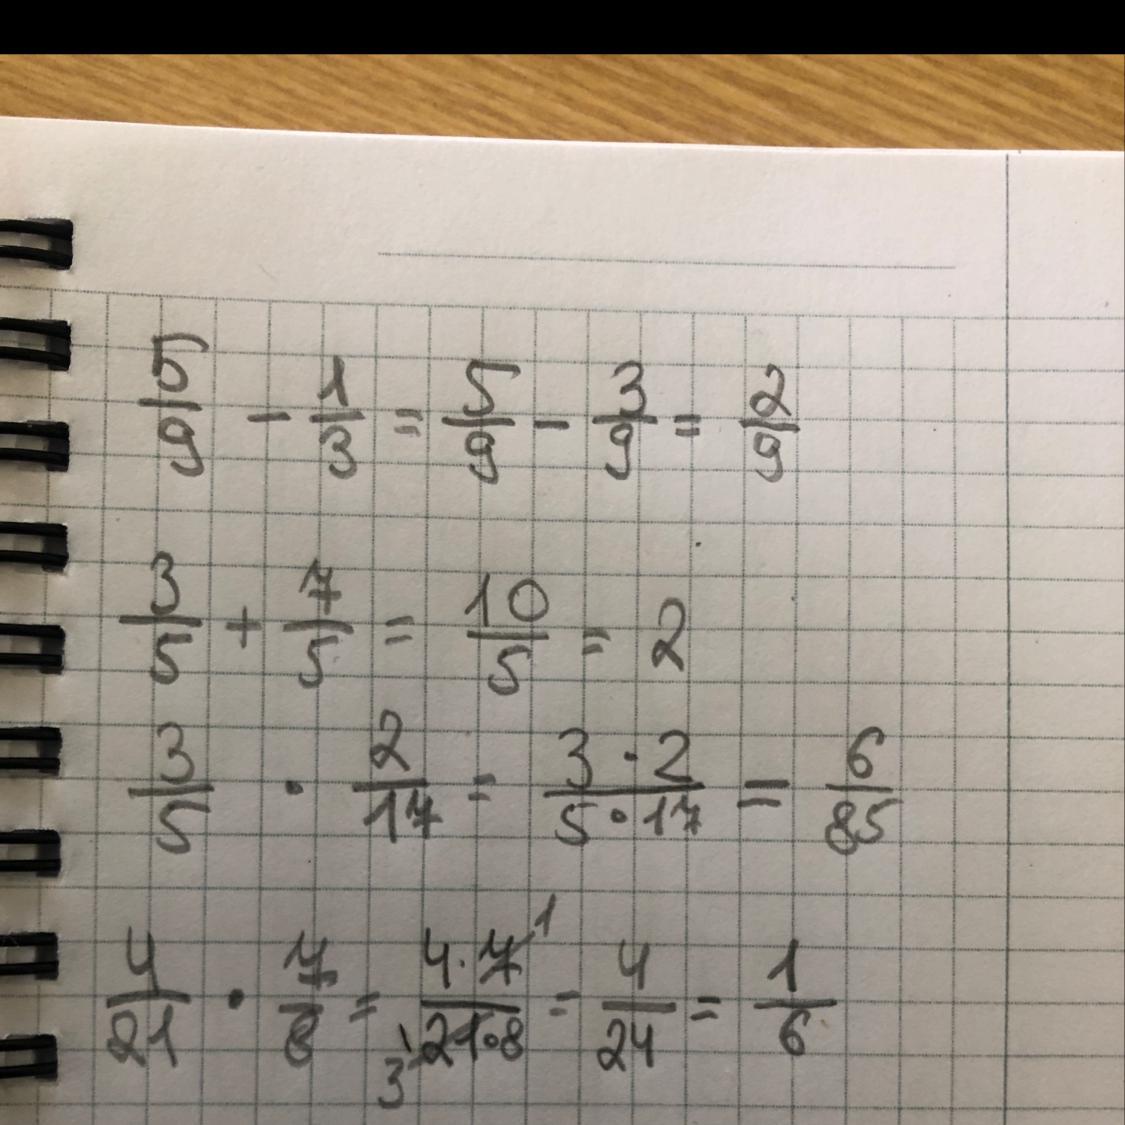 5/9 - 1/3 = 5/9 - 3/9 = 2/9
3/5 + 7/5 = 10/5 = 2
3/5 · 2/17 = 3·2/5·17 = 6/85
4/21 · 7/8 = 4·7 1/3 21·8 = 4/24 = 1/6